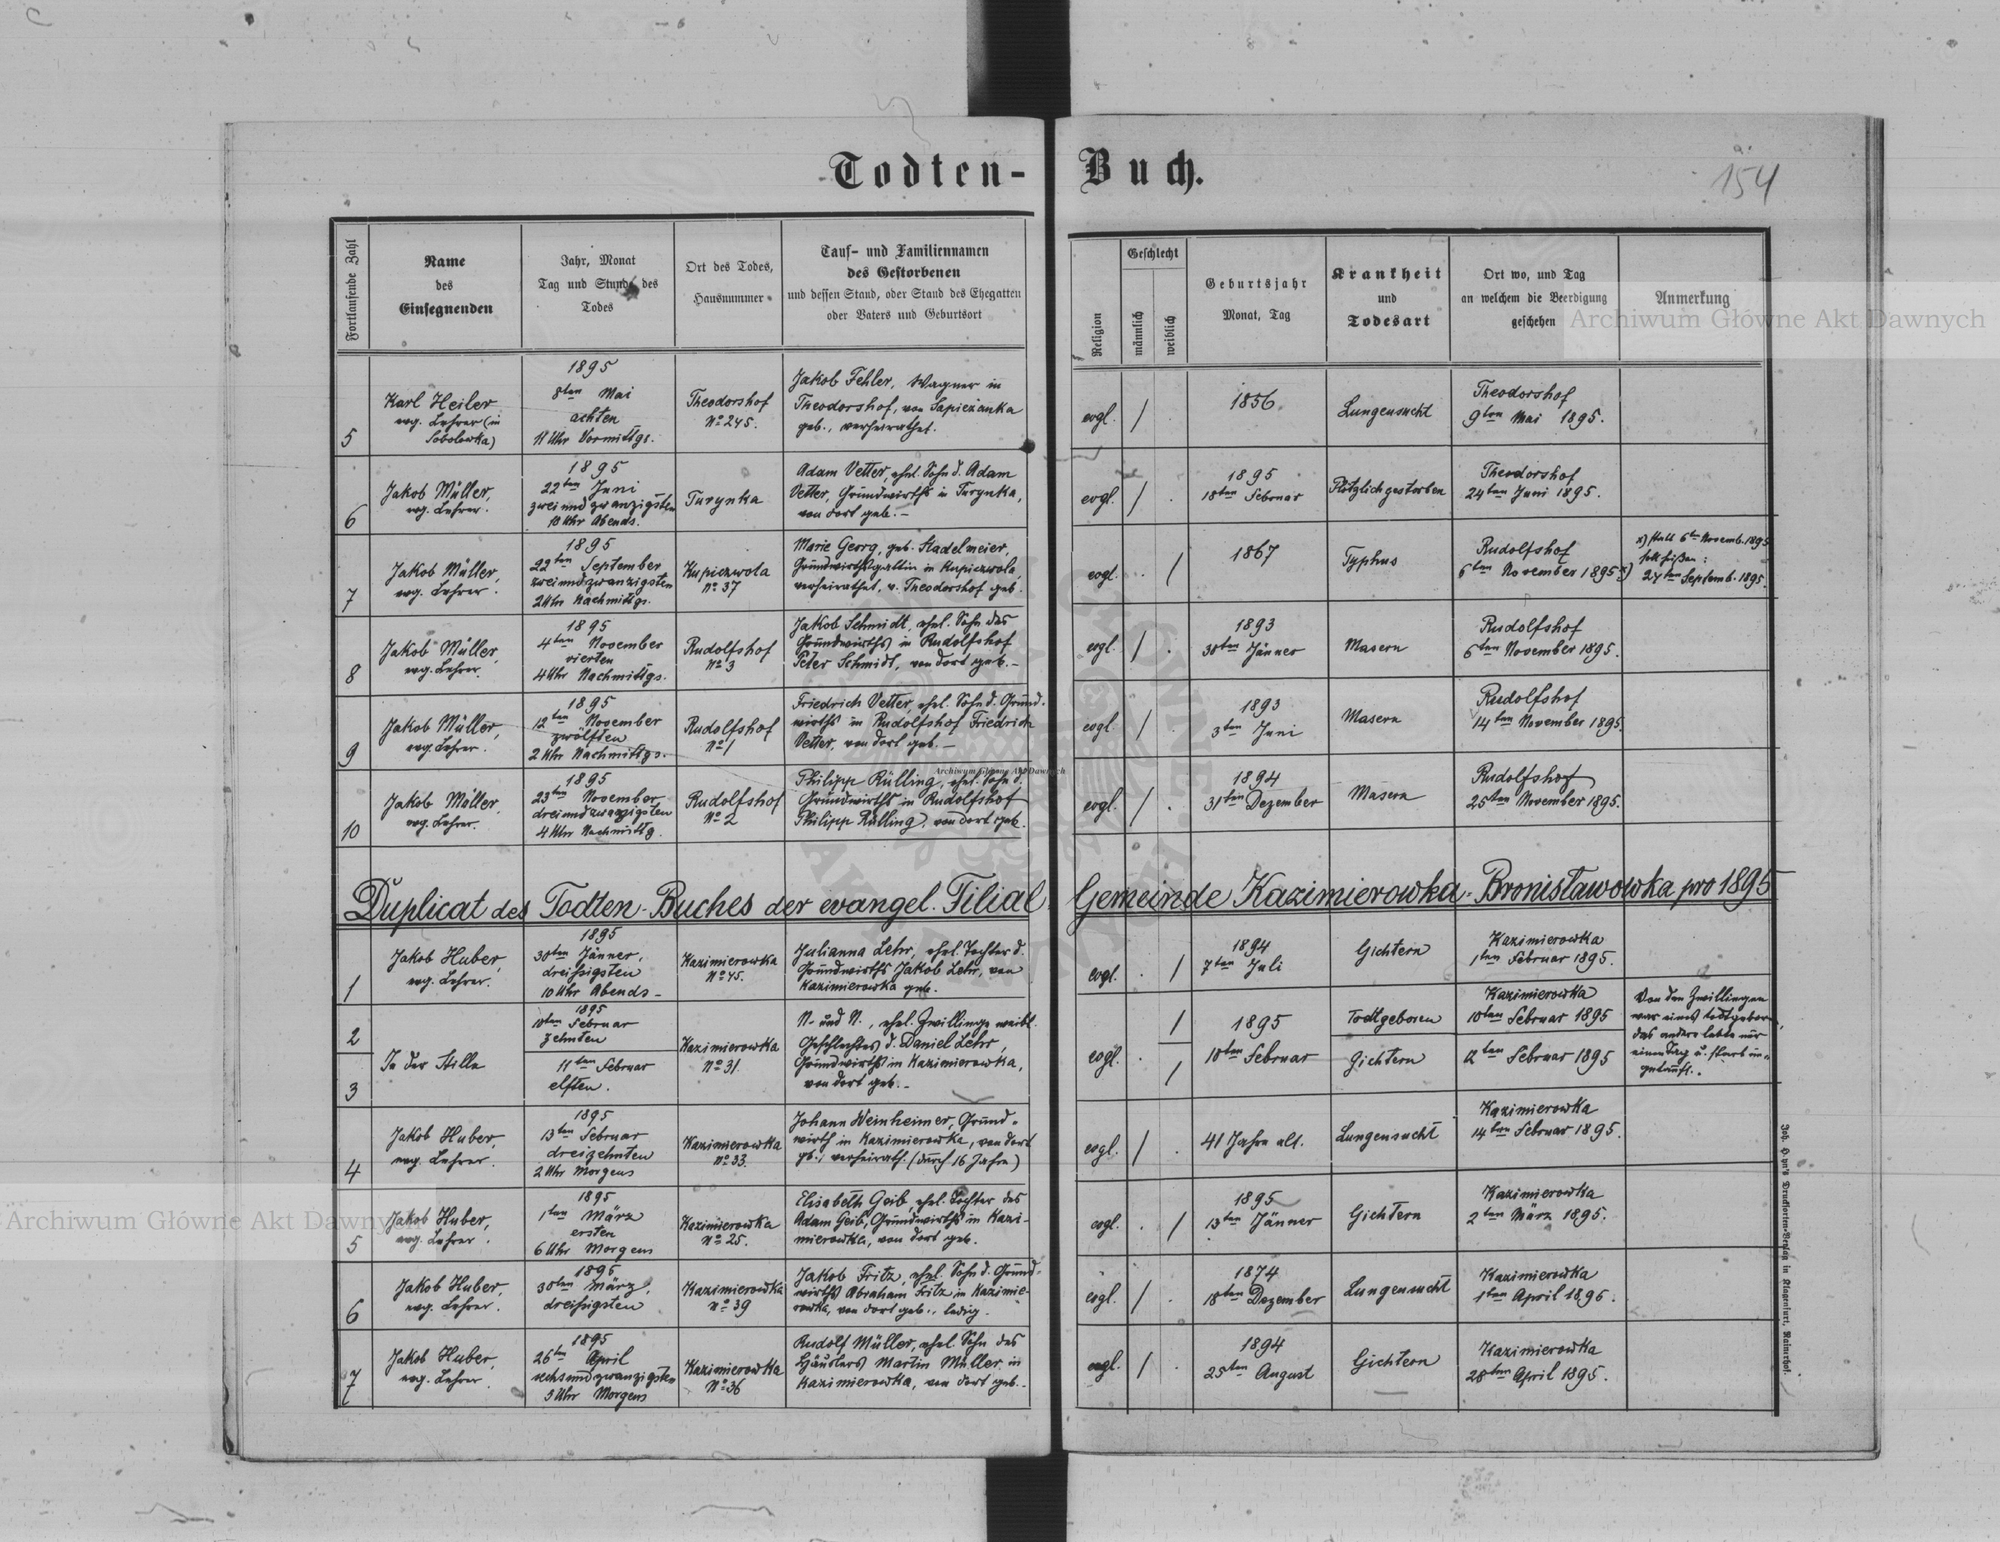 Todten- Buch.
154
Fortlaufende Zahl
Name
des
Einsegnenden
Jahr, Monat
Tag und Stunde des
Todes
Ort des Todes,
Hausnummer
Tauf- und Familiennamen
des Gestorbenen
und dessen Stand, oder Stand des Ehegatten
oder Vaters und Geburtsort
Religion
Geschlecht
männlich
weiblich
Geburtsjahr
Monat, Tag
Krankheit
und
Todesart
Ort wo, und Tag
an welchem die Beerdigung
geschehen
Anmerkung
Archiwum Główne Akt Dawnych
5
Karl Heiler
evg. Lehrer (in
Sobolowka)
1895
8ten Mai
achten
11 Uhr Vormittgs.
Theodorshof
No 245.
Jakob Fehler, Wagner in
Theodorshof, von Sapiezanka
geb., verheirathet.
evgl. /
1856
Lungensucht
Theodorshof
9ten Mai 1895.
6
Jakob Müller,
evg. Lehrer.
1895
22ten Juni
zweiundzwanzigsten
10 Uhr Abends.
Turynka
Adam Vetter, ehel. Sohn d. Adam
Vetter, Grundwirths in Turynka,
von dort geb. –
evgl. / .
1895
18ten Februar
Plötzlich gestorben
Theodorshof
24ten Juni 1895.
7
Jakob Müller,
evg. Lehrer.
1895
22ten September
zweiundzwanzigsten
2 Uhr Nachmittgs.
Kupiczwola
No 37
Marie Georg, geb. Stadelmeier,
Grundwirthsgattin in Kupiczwola,
verheirathet, v. Theodorshof geb.
evgl. . /
1867
Typhus
Rudolfshof
6ten November 1895 x)
x) statt 6ten Novemb. 1895
soll heißen:
24ten Septemb. 1895.
8
Jakob Müller,
evg. Lehrer.
1895
4ten November
vierten
4 Uhr Nachmittgs.
Rudolfshof
No 3
Jakob Schmidt, ehel. Sohn des
Grundwirths in Rudolfshof
Peter Schmidt, von dort geb. –
evgl. / .
1893
30ten Jänner
Masern
Rudolfshof
6ten November 1895.
9
Jakob Müller,
evg. Lehrer.
1895
12ten November
zwölften
2 Uhr Nachmittgs.
Rudolfshof
No 1
Friedrich Vetter, ehel. Sohn d. Grund-
wirths in Rudolfshof Friedrich
Vetter, von dort geb. –
evgl. / .
1893
3ten Juni
Masern
Rudolfshof
14ten November 1895.
10
Jakob Müller,
evg. Lehrer.
1895
23ten November
dreiundzwanzigsten
4 Uhr Nachmittg.
Rudolfshof
No 2
Philipp Rülling, ehel. Sohn d.
Grundwirths in Rudolfshof
Philipp Rülling, von dort geb.
Archiwum Główne Akt Dawnych
evgl. / .
1894
31ten Dezember
Masern
Rudolfshof
25ten November 1895.
Duplicat des Todten-Buches der evangel. Filial Gemeinde Kazimierowka-Bronisławowka pro 1895
1
Jakob Huber,
evg. Lehrer.
1895
30ten Jänner,
dreißigsten
10 Uhr Abends –
Kazimierowka
No 45.
Julianna Lehr, ehel. Tochter d.
Grundwirths Jakob Lehr, von
Kazimierowka geb.
evgl. . /
1894
7ten Juli
Gichtern
Kazimierowka
1ten Februar 1895.
2
3
In der Stille
1895
10ten Februar
zehnten
11ten Februar
elften.
Kazimierowka
No 31.
N. und N., ehel. Zwillinge weibl.
Geschlechtes d. Daniel Lehr,
Grundwirths in Kazimierowka,
von dort geb. –
evgl. . /
/
1895
10ten Februar
Todtgeboren
Gichtern
Kazimierowka
10ten Februar 1895
12ten Februar 1895
Von den Zwillingen
war eines todtgeboren,
das andere lebte nur
einen Tag u. starb un-
getauft.
4
Jakob Huber,
evg. Lehrer.
1895
13ten Februar
dreizehnten
2 Uhr Morgens
Kazimierowka
No 33.
Johann Weinheimer, Grund-
wirth in Kazimierowka, von dort
gb., verheirath. (durch 16 Jahre)
evgl. / .
41 Jahre alt.
Lungensucht
Kazimierowka
14ten Februar 1895.
5
Jakob Huber,
evg. Lehrer.
1895
1ten März
ersten
6 Uhr Morgens
Kazimierowka
No 25.
Elisabeth Geib, ehel. Tochter des
Adam Geib, Grundwirths in Kazi-
mierowka, von dort geb.
evgl. . /
1895
13ten Jänner
Gichtern
Kazimierowka
2ten März 1895.
Archiwum Główne Akt Dawnych
6
Jakob Huber,
evg. Lehrer.
1895
30ten März,
dreißigsten
Kazimierowka
No 39
Jakob Fritz, ehel. Sohn d. Grund-
wirths Abraham Fritz in Kazimie-
rowka, von dort geb., ledig.
evgl. / .
1874
18ten Dezember
Lungensucht
Kazimierowka
1ten April 1895.
7
Jakob Huber,
evg. Lehrer.
1895
26ten April
sechsundzwanzigsten
5 Uhr Morgens
Kazimierowka
No 36
Rudolf Müller, ehel. Sohn des
Häuslers Martin Müller, in
Kazimierowka, von dort geb. –
evgl. / .
1894
25ten August
Gichtern
Kazimierowka
28ten April 1895.
Drucksorten-Verlag in Klagenfurt, Rainerhof.